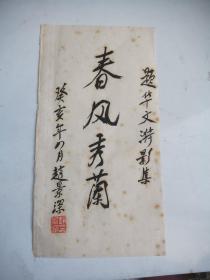 题华文漪影集
春风秀兰
癸亥年四月赵景深